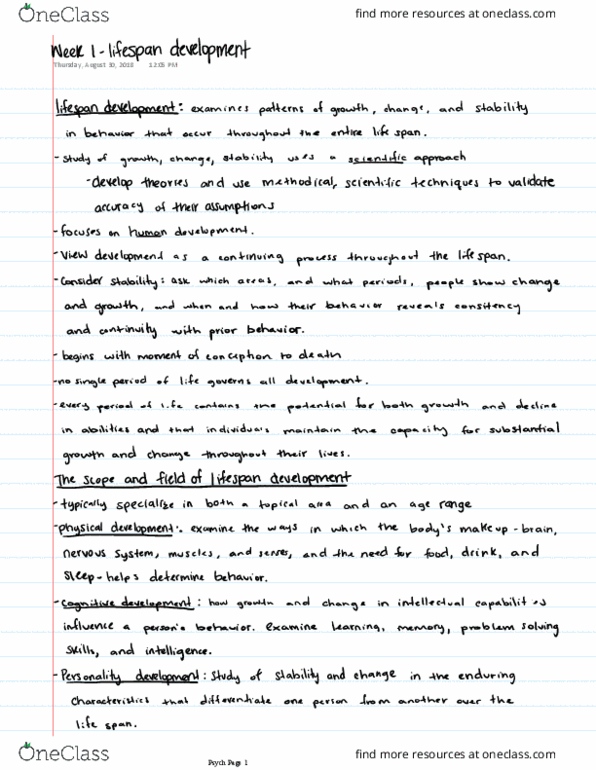 OneClass
find more resources at oneclass.com
Week 1 - lifespan development
Thursday, August 30, 2018 12:05 PM
lifespan development: examines patterns of growth, change, and stability
in behavior that occur throughout the entire life span.
- study of growth, change, stability uses a scientific approach
- develop theories and use methodical, scientific techniques to validate
accuracy of their assumptions
- focuses on human development.
- View development as a continuing process throughout the lifespan.
- Consider stability: ask which areas, and what periods, people show change
and growth, and when and how their behavior reveals consitency
and continuity with prior behavior.
- begins with moment of conception to death
- no single period of life governs all development.
- every period of life contains the potential for both growth and decline
in abilities and that individuals maintain the capacity for substantial
growth and change throughout their lives.
The scope and field of lifespan development
- typically specialize in both a topical area and an age range
- Physical development: examine the ways in which the body's makeup - brain,
nervous system, muscles, and senses, and the need for food, drink, and
sleep - helps determine behavior.
- Cognitive development: how growth and change in intellectual capabilities
influence a person's behavior. examine learning, memory, problem solving
skills, and intelligence.
- Personality development: study of stability and change in the enduring
characteristics that differentiate one person from another over the
life span.
OneClass
Psych Page 1
find more resources at oneclass.com